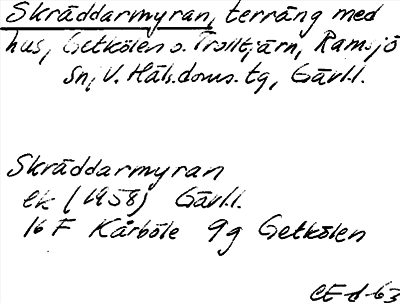 Skräddarmyran, terräng med
hus, Getkölen o. Trolltjärn, Ramsjö
sn, V. Häls.doms. tg, Gävl.l.
Skräddarmyran
ek (1958) Gävl.l.
16 F Kårböle 9g Getkölen
CE d 63